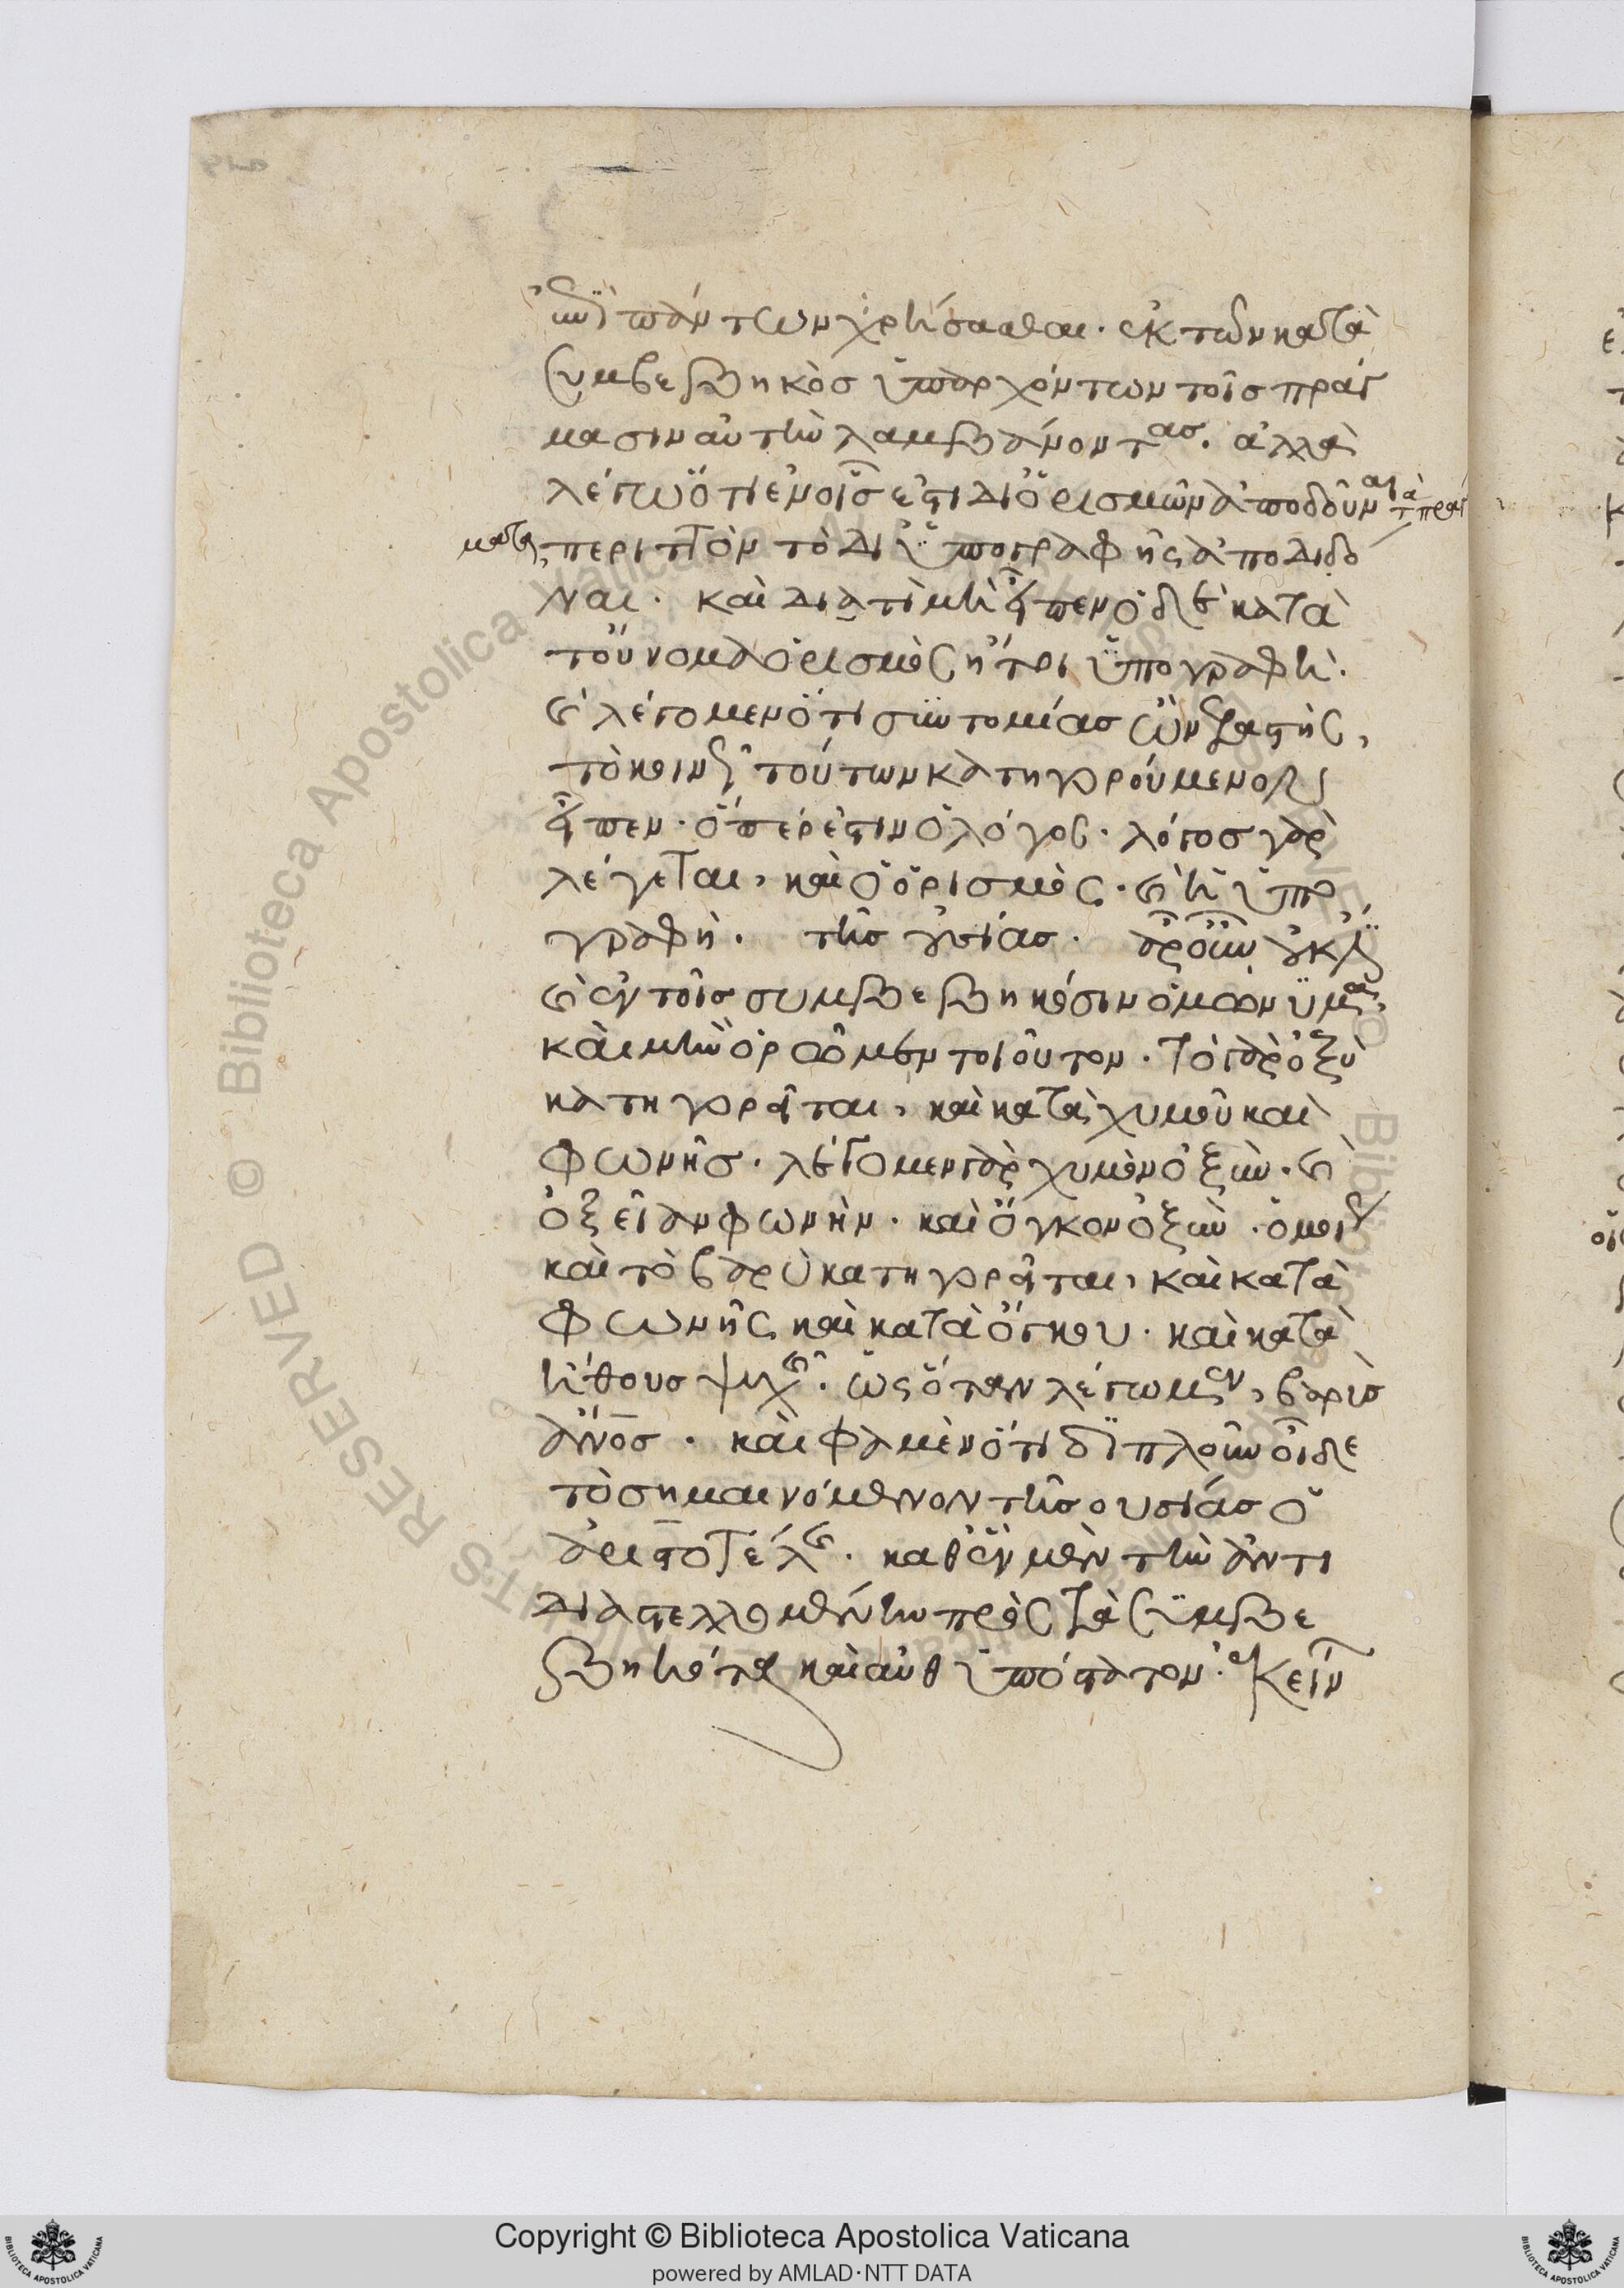 ἐπὶ πάντων χρήσασθαι. ἐκ τῶν κατὰ
συμβεβηκὸς ὑπαρχόντων τοῖς πράγ
μασιν αὐτὴν λαμβάνοντας. ἀλλὰ
λέγω ὅτι ἐν οἷς ἐστὶ δι' ὁρισμῶν ἀποδοῦναι τὰ πράγ
ματα, περιττὸν τὸ δι' ὑπογραφῆς ἀποδιδό
ναι. καὶ διατί μὴ εἶπεν ὁ δὲ κατὰ
τοὔνομα ὁρισμὸς ἤτοι ὑπογραφή.
καὶ λέγομεν ὅτι συντομίας ὢν ἐραστής,
τὸ κοινῇ τούτων κατηγορούμενον
εἶπεν. ὅπερ ἐστὶν ὁ λόγος. λόγος γὰρ
λέγεται, καὶ ὁ ὁρισμὸς. καὶ ἡ ὑπο
γραφή. τῆς οὐσίας. ἆρ' οὖν οὐκ εἰσὶ
καὶ ἐν τοῖς συμβεβηκόσιν ὁμώνυμα,
καὶ μὴν ὁρῶμεν τοιοῦτον. τὸ γὰρ ὀξὺ
κατηγορεῖται, καὶ κατὰ χυμοῦ καὶ
φωνῆς. λέγομεν γὰρ χυμὸν ὀξύν. καὶ
ὀξεῖαν φωνήν. καὶ ὄγκον ὀξὺν. ὁμοίως
καὶ τὸ βαρὺ κατηγορεῖται, καὶ κατὰ
φωνῆς καὶ κατὰ ὄγκου. καὶ κατὰ
ἤθους ψυχῆς. ὡς ὅταν λέγωμεν, βαρὺς
ἄνος. καὶ φαμὲν ὅτι διπλοῦν οἶδε
τὸ σημαινόμενον τῆς οὐσίας ὁ
ἀριστοτέλης. καθ' ἓν μὲν τὴν ἀντι
διαστελλομένην πρὸς τὰ συμβε
βηκότα καὶ αὐθυπόστατον. ἐκείν